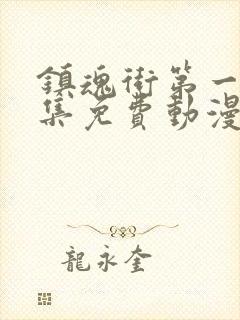 鎮魂街第一
集免費動漫
龍永奎